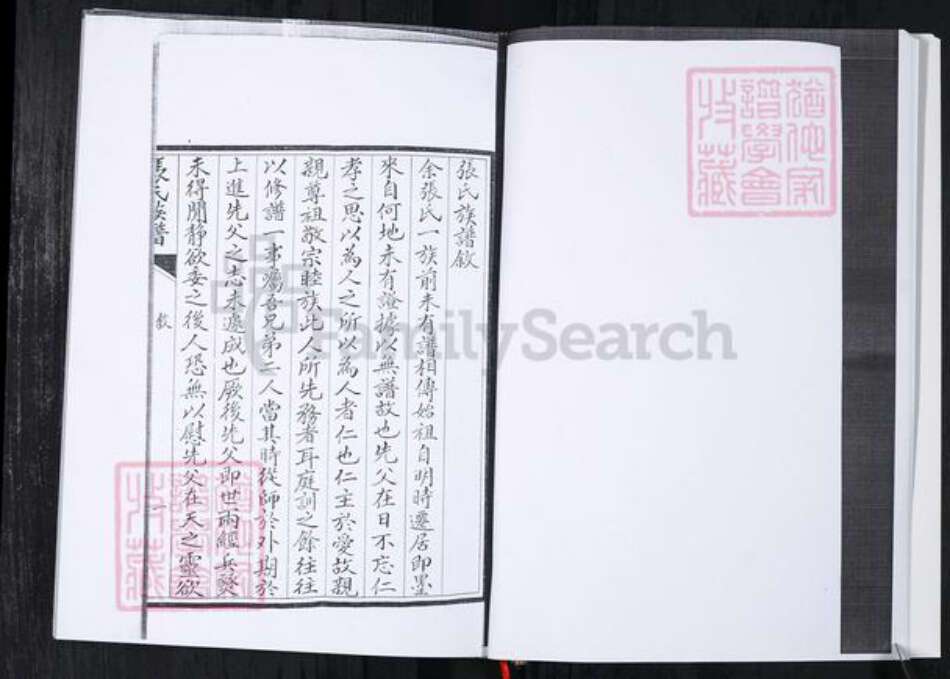 張氏族譜敘
余張氏一族前未有譜相傳始祖自明時遷居即墨
來自何地未有證據以無譜故也先父在日不忘仁
孝之思以為人之所以為人者仁也仁主於愛故親
親尊祖敬宗睦族此人所先務者耳庭訓之餘往往
以修譜一事囑吾兄弟二人當其時從師於外期於
上進先父之志未遽成也厥後先父即世兩經兵燹
未得閒靜欲委之後人恐無以慰先父在天之靈欲
張氏族譜
敘
一
猶他家
譜學會
收藏
FamilySearch